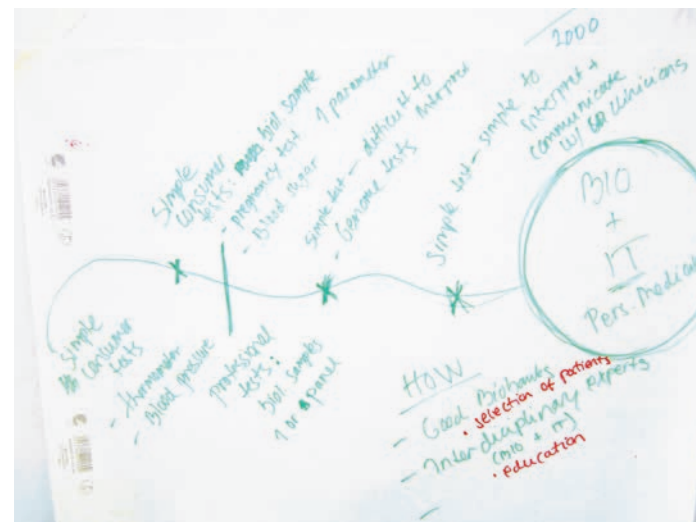 2000
simple
consumer
tests: biol sample
- pregnancy test 1 parameter
- Blood sugar
simple test - difficult to
interpret
- Genome tests
simple test - simple to
interpret +
communicate
w/ clinicians
BIO
+
IT
Pers. Medicine
simple
consumer
tests
- thermometer
- Blood pressure
professional
tests:
biol samples
1 or panel
HOW
- Good Biobanks
• selection of patients
- Interdisciplinary experts
(BIO + IT)
• education
-